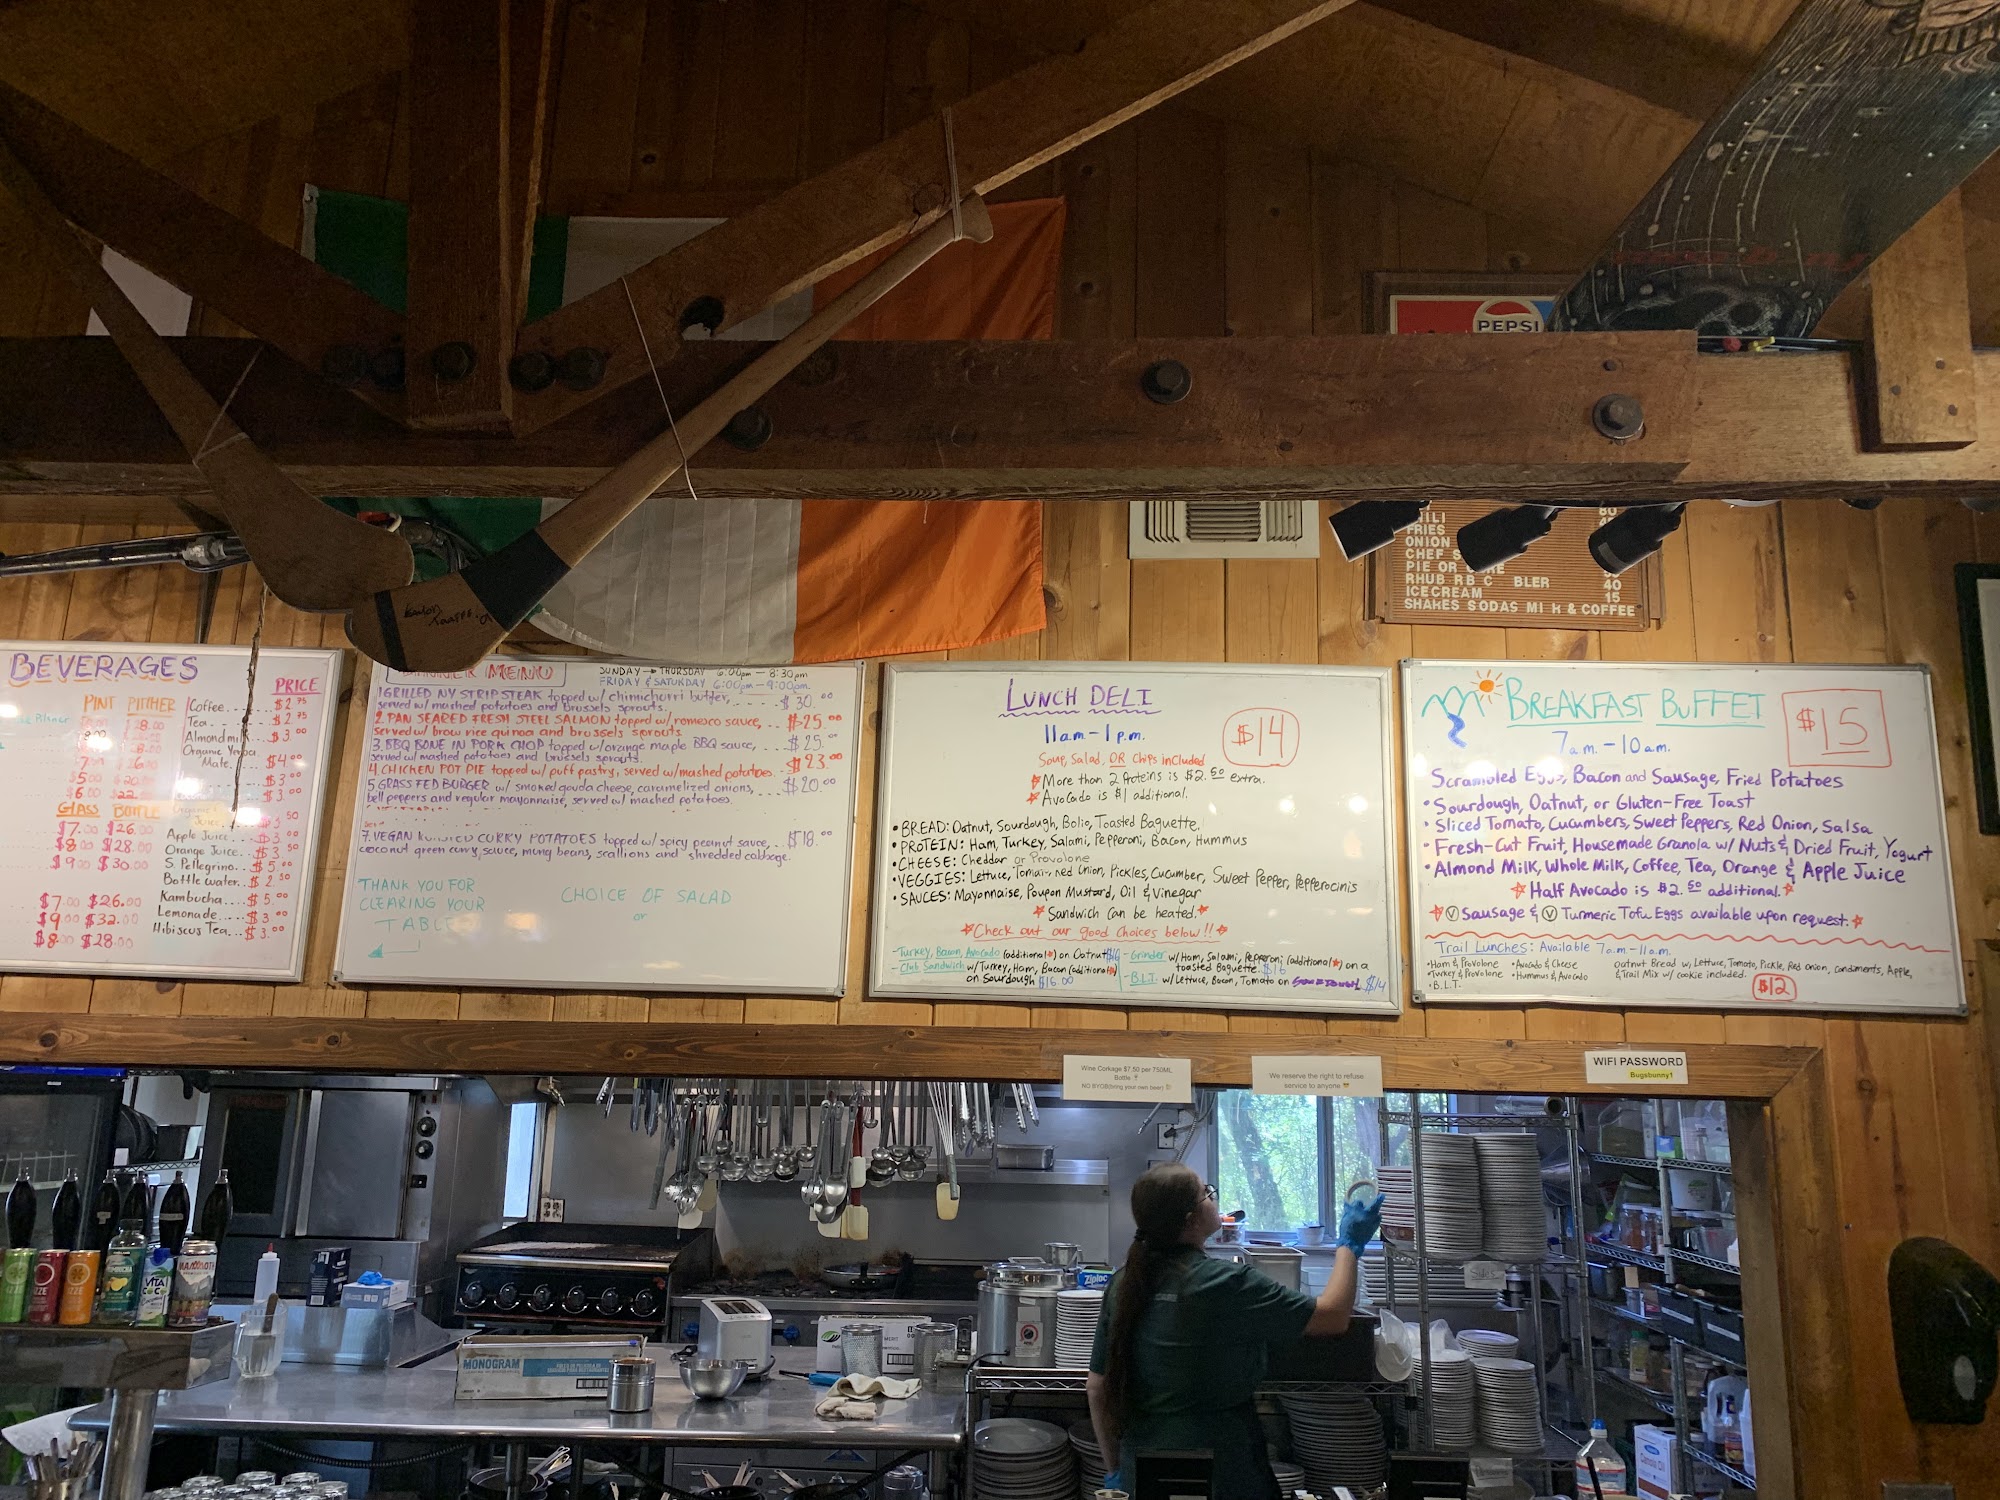 PEPSI
80
FRIES
ONION
CHEF S
PIE OR
RHUB RB C BLER
40
ICECREAM
15
SHAKES SODAS MI K & COFFEE
BEVERAGES
PRICE
PINT PITCHER
$28.00
$5.00
$6.00 $22.
GLASS BOTTLE
$7.00 $26.00
$8.00 $28.00
$9.00 $30.00
$7.00 $26.00
$9.00 $32.00
$8.00 $28.00
Coffee.... $2.75
Tea.... $2.75
Almond milk... $3.00
Organic Yerba
Mate. $4.00
$3.00
$3.00
Juice...
Apple Juice... $3.00
Orange Juice... $3.50
S. Pellegrino... $5.00
Bottle water... $2.50
Kambucha... $5.00
Lemonade... $3.00
Hibiscus Tea... $3.00
MENU
SUNDAY → THURSDAY 6:00pm — 8:30pm
FRIDAY & SATURDAY 6:00pm — 9:00pm
1. GRILLED NY STRIP STEAK topped w/ chimichurri butter, $30.00
served w/ mashed potatoes and brussels sprouts.
2. PAN SEARED FRESH STEEL SALMON topped w/ romesco sauce, $25.00
served w/ brow rice quinoa and brussels sprouts
3. BBQ BONE IN PORK CHOP topped w/ orange maple BBQ sauce, $25.00
served w/ mashed potatoes and brussels sprouts.
4. CHICKEN POT PIE topped w/ puff pastry, served w/ mashed potatoes. $23.00
5. GRASS FED BURGER w/ smoked gouda cheese, caramelized onions, $20.00
bell peppers and regular mayonnaise, served w/ mached potatoes.
7. VEGAN CURRY POTATOES topped w/ spicy peanut sauce, $18.00
coconut green curry, sauce, mung beans, scallions and shredded cabbage.
THANK YOU FOR
CLEARING YOUR
TABLE
CHOICE OF SALAD
or
LUNCH DELI
11am – 1pm.
$14
Soup, Salad, OR Chips included
More than 2 Proteins is $2.50 extra.
Avocado is $1 additional.
• BREAD: Oatnut, Sourdough, Bolio, Toasted Baguette.
• PROTEIN: Ham, Turkey, Salami, Pepperoni, Bacon, Hummus
• CHEESE: Cheddar or Provolone
• VEGGIES: Lettuce, Tomato, Red Onion, Pickles, Cucumber, Sweet Pepper, Pepperocinis
• SAUCES: Mayonnaise, Poupon Mustard, Oil & Vinegar
Sandwich can be heated.
Check out our good Choices below!!
– Turkey, Bacon, Avocado (additional) on Oatnut $16
– Club Sandwich w/ Turkey, Ham, Bacon (additional)
on Sourdough $16.00
– Grinder w/ Ham, Salami, Pepperoni (additional) on a
toasted Baguette. $16
– B.L.T. w/ Lettuce, Bacon, Tomato on Sourdough $14
BREAKFAST BUFFET
7am. – 10am.
$15
Scrambled Eggs, Bacon and Sausage, Fried Potatoes
• Sourdough, Oatnut, or Gluten-Free Toast
• Sliced Tomato, Cucumbers, Sweet Peppers, Red Onion, Salsa
• Fresh-Cut Fruit, Housemade Granola w/ Nuts & Dried Fruit, Yogurt
• Almond Milk, Whole Milk, Coffee, Tea, Orange & Apple Juice
Half Avocado is $2.50 additional.
Ⓥ Sausage & Ⓥ Turmeric Tofu Eggs available upon request.
Trail Lunches: Available 7a.m.–11a.m.
• Ham & Provolone • Avocado & Cheese
• Turkey & Provolone • Hummus & Avocado
• B.L.T.
Oatnut Bread w/ Lettuce, Tomato, Pickle, Red Onion, Condiments, Apple,
& Trail Mix w/ cookie included.
$12
Wine Corkage $7.50 per 750ML
Bottle
NO BYOB(bring your own beer)
We reserve the right to refuse
service to anyone
WIFI PASSWORD
Bugsbunny1
MONOGRAM
Ziploc
Side's
VITA
COCO
IZZE
IZZE
KOMBUCHA